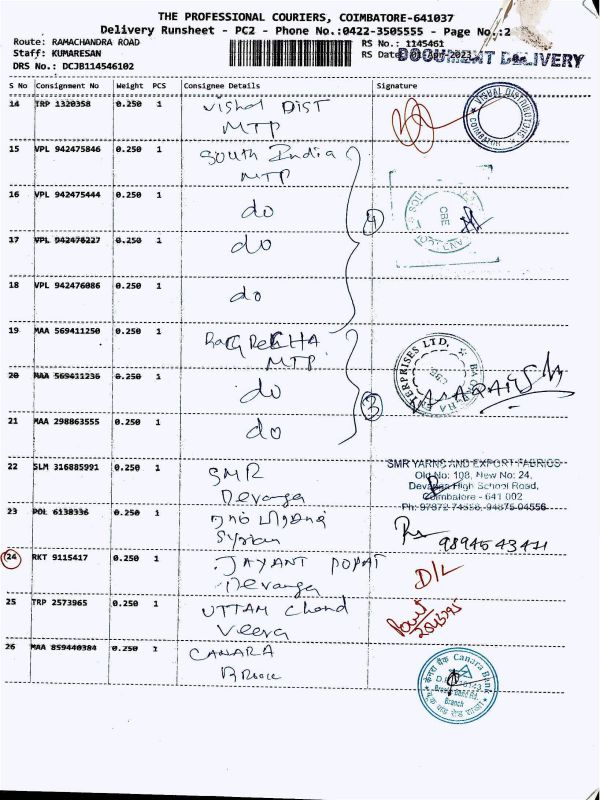 THE PROFESSIONAL COURIERS, COIMBATORE-641037
Delivery Runsheet - PC2 - Phone No.:0422-3505555 - Page No.:2
Route: RAMACHANDRA ROAD
RS No.: 1145461
Staff: KUMARESAN
RS Date: -Apr-2023
DOCUMENT DELIVERY
DRS No.: DCJB114546102
S No Consignment No Weight PCS Consignee Details Signature
14 TRP 1320358 0.250 1 Vishal DIST
MTP
VISHAL DISTRIBUTORS
COIMBATORE
15 VPL 942475846 0.250 1 South India
MTP
16 VPL 942475444 0.250 1 do
4
CBE
17 VPL 942476227 0.250 1 do
18 VPL 942476086 0.250 1 do
19 MAA 569411250 0.250 1 BAGREECHA
MTP
ENTERPRISES LTD.
20 MAA 569411236 0.250 1 do
3
21 MAA 298863555 0.250 1 do
22 SLM 316885991 0.250 1 SMR
Devanga
SMR YARNS AND EXPORT FABRICS
Old No: 108, New No: 24,
Devangas High School Road,
Coimbatore - 641 002
Ph: 97872 74556, 94875 04556
23 POL 6138336 0.250 1
Syrian
98945 43411
24 RKT 9115417 0.250 1 JAYANT POPAT
Devanga
D/L
25 TRP 2573965 0.250 1 UTTAM Chand
Veera
26 MAA 859440384 0.250 1 CANARA
Brooke
केनरा बैंक Canara Bank
Branch